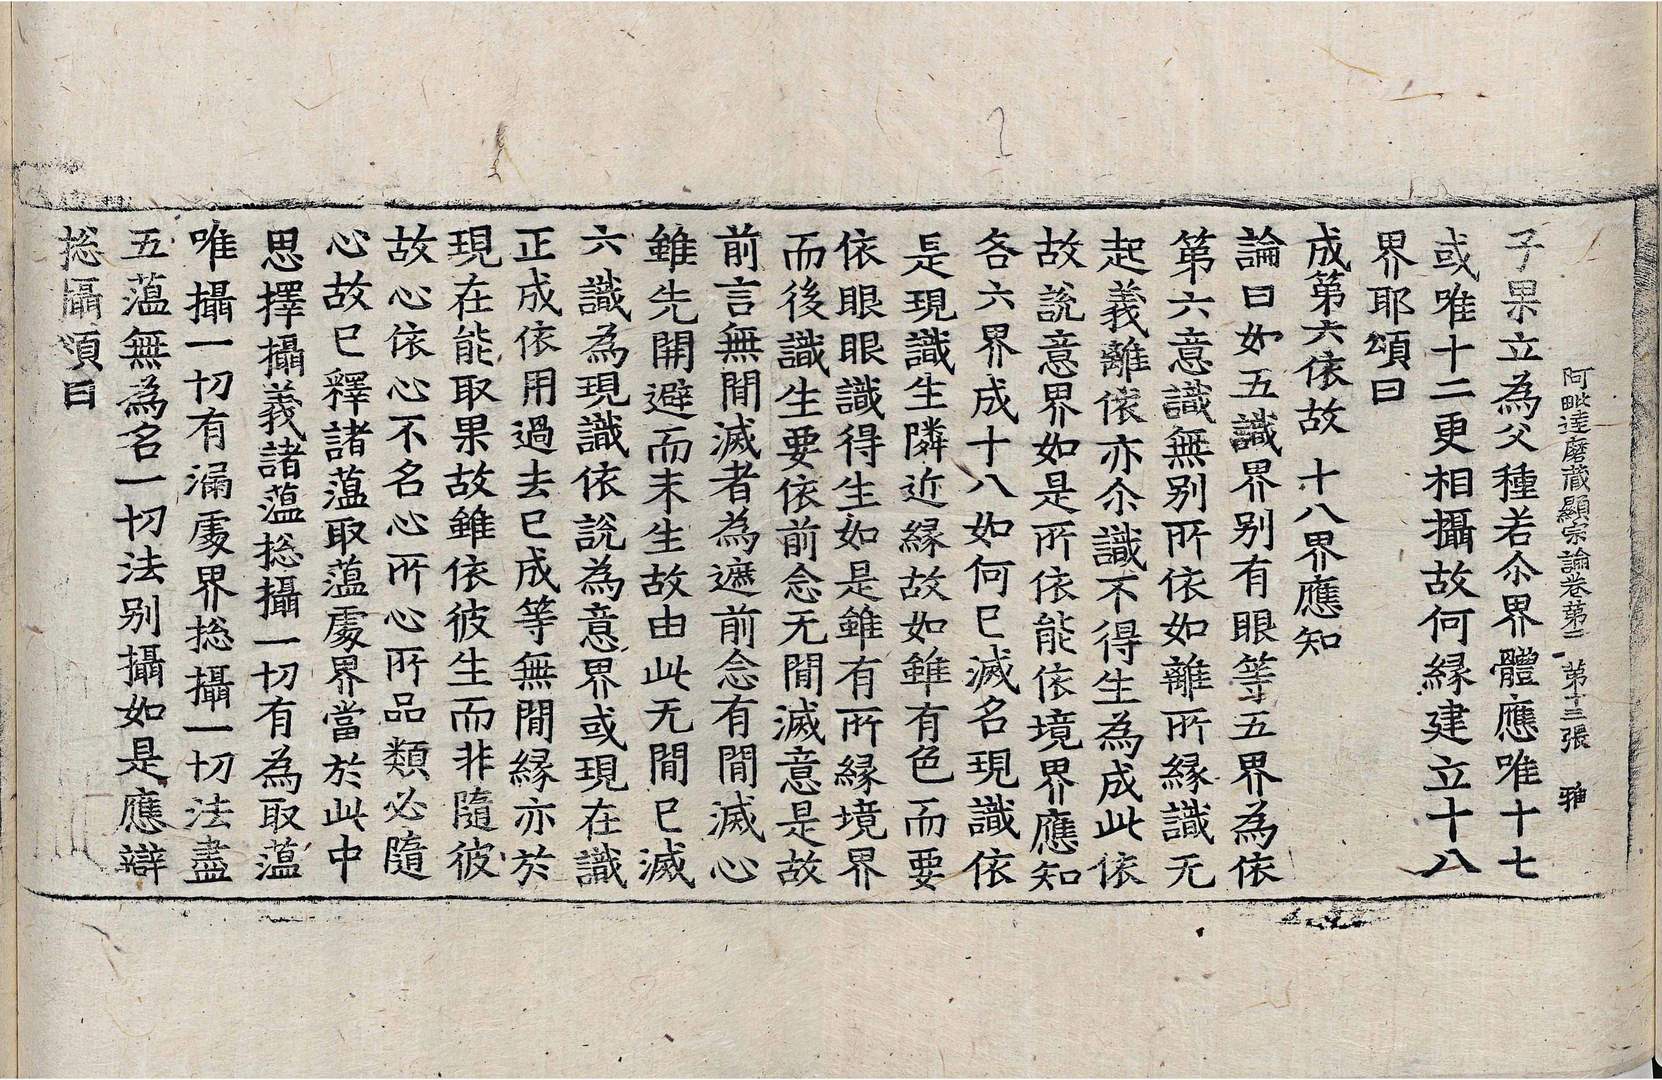 阿毗達磨藏顯宗論卷第二 第十三張 雅
子果立為父種若尒界體應唯十七
或唯十二更相攝故何緣建立十八
界耶頌曰
成第六依故 十八界應知
論曰如五識界别有眼等五界為依
第六意識無别所依如離所緣識无
起義離依亦尒識不得生為成此依
故說意界如是所依能依境界應知
各六界成十八如何已滅名現識依
是現識生隣近緣故如雖有色而要
依眼眼識得生如是雖有所緣境界
而後識生要依前念无間滅意是故
前言無間滅者為遮前念有間滅心
雖先開避而未生故由此无間已滅
六識為現識依說為意界或現在識
正成依用過去已成等無間緣亦於
現在能取果故雖依彼生而非隨彼
故心依心不名心所心所品類必隨
心故已釋諸蘊取蘊處界當於此中
思擇攝義諸蘊捴攝一切有為取蘊
唯攝一切有漏處界捴攝一切法盡
五蘊無為名一切法别攝如是應辯
捴攝頌曰